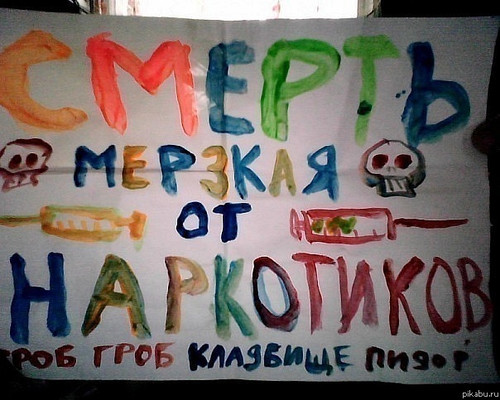 СМЕРТЬ
МЕРЗКАЯ
ОТ
НАРКОТИКОВ
ГРОБ ГРОБ КЛАДБИЩЕ ПИДОР
pikabu.ru